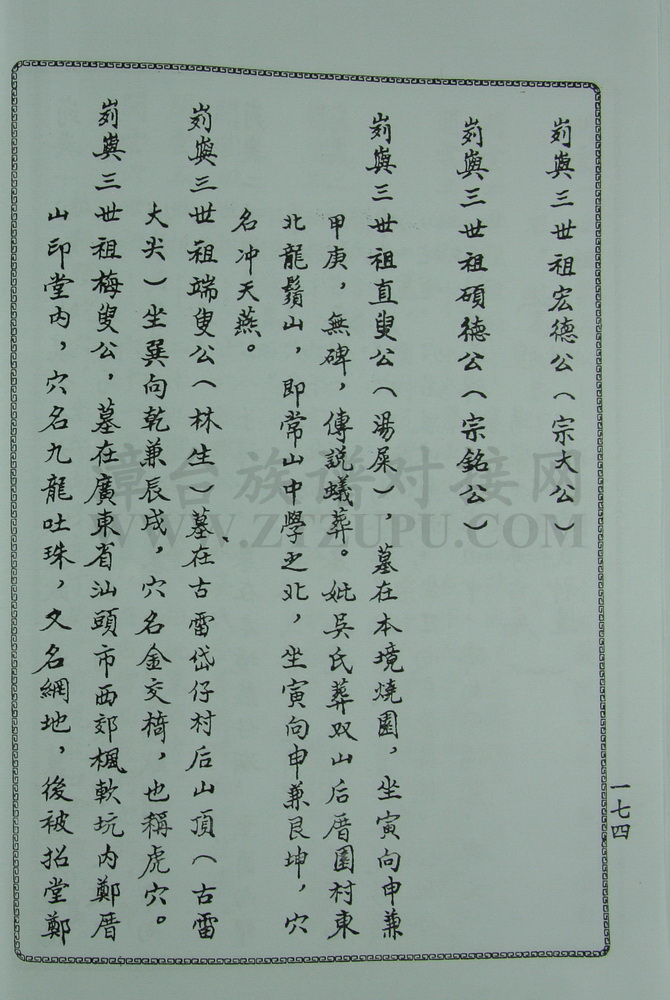 刿與三世祖宏德公(宗大公)
刿與三世祖碩德公(宗銘公)
刿與三世祖直叟公(湯屎),墓在本境燒園,坐寅向申兼
甲庚,無碑,傳説蟻葬。妣吳氏葬双山后厝園村東
北龍鬚山,即常山中學之北,坐寅向申兼艮坤,穴
名冲天燕。
刿與三世祖端叟公(林生)墓在古雷岱仔村后山頂(古雷
大尖)坐巽向乾兼辰戌,穴名金交椅,也稱虎穴。
刿與三世祖梅叟公,墓在廣東省汕頭市西郊楓軟坑内鄭厝
山印堂内,穴名九龍吐珠,又名網地,後被招堂鄭
一七四
漳台族谱对接网
WWW.ZTZUPU.COM